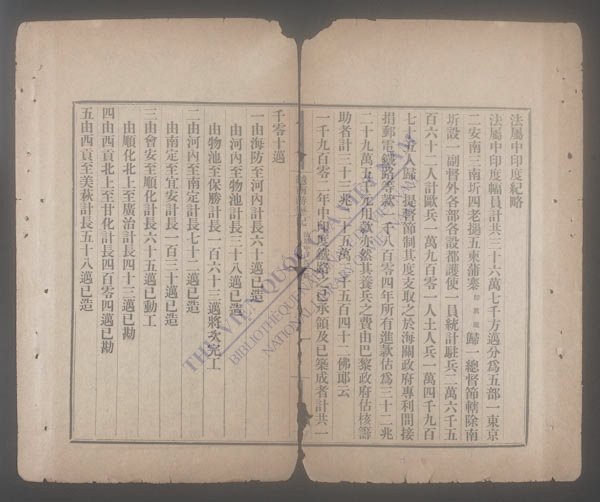 法屬中印度紀略
法屬中印度幅員計共三十六萬七千方邁分為五部一東京
二安南三南圻四老撾五東蒲寨歸一總督節轄除南
圻設一副督外各部各設都護使一員統計駐兵二萬六千五
百六十二人計歐兵一萬九百零一人土人兵一萬四千九百
七十五人歸一提督節制其度支取之於海關政府專利間接
捐郵電鐵路等款一千八百零四年所有進款估為三十二兆
二十九萬五千元用款亦然其養兵之費由巴黎政府估核籌
助者計三十三兆一十五萬二千五百四十二佛郎云
一千九百零二年中印度鐵路已承領及已築成者計共一
千零十邁
一由海防至河內計長六十邁已造
由河內至物池計長三十八邁已造
由物池至保勝計長一百六十二邁將次完工
二由河內至南定計長七十二邁已造
由南定至宜安計長一百三十邁已造
三由會安至順化計長六十五邁已動工
由順化北上至廣治計長四十三邁已勘
四由西貢北上至甘化計長四百零四邁已勘
五由西貢至美萩計長五十八邁已造
THƯ VIỆN QUỐC GIA VIỆT NAM